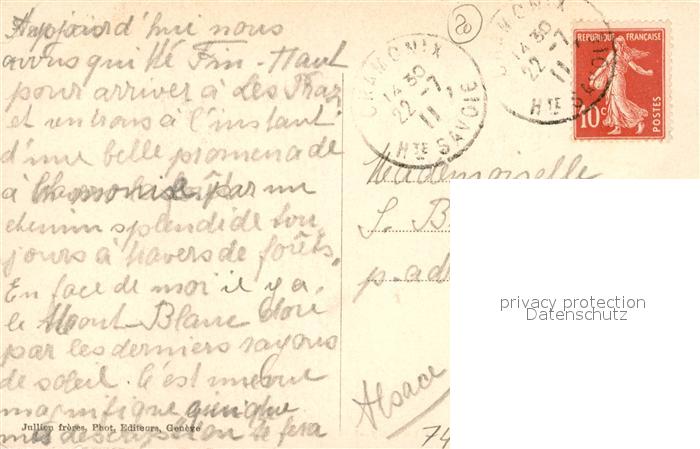 Aujourd'hui nous
avons quitté Fin-Haut
pour arriver à Les Praz
et rentrons à l'instant
d'une belle promenade
à Chamonix par un
chemin splendide tou
jours à travers de forêts.
En face de moi il y a
le Mont-Blanc doré
par les derniers rayons
de soleil. C'est une vue
magnifique
description te fera
Jullien frères, Phot. Editeurs, Genève
CHAMONIX
14 30
22 - 7
11
HTE SAVOIE
CHAMONIX
14 30
22 - 7
11
HTE SAVOIE
REPUBLIQUE FRANÇAISE
POSTES
10c
Mademoiselle
S. B
p. ad
Alsace
74
privacy protection
Datenschutz